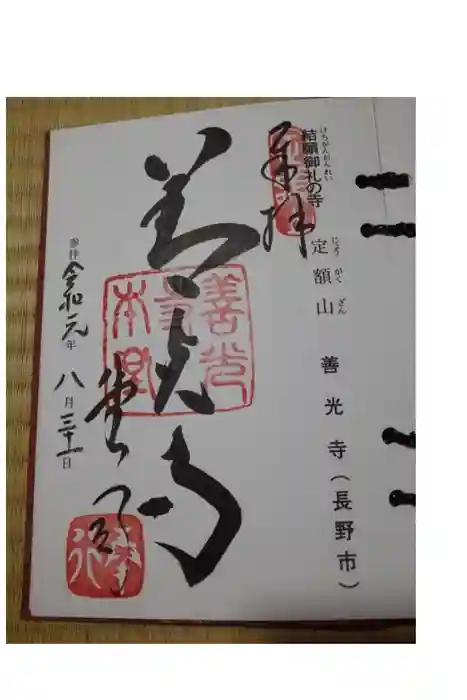 結願御礼の寺
けちがんおんれい
定額山 善光寺(長野市)
じょうがくざん
奉拝
善光寺
参拝 令和元年八月三十一日